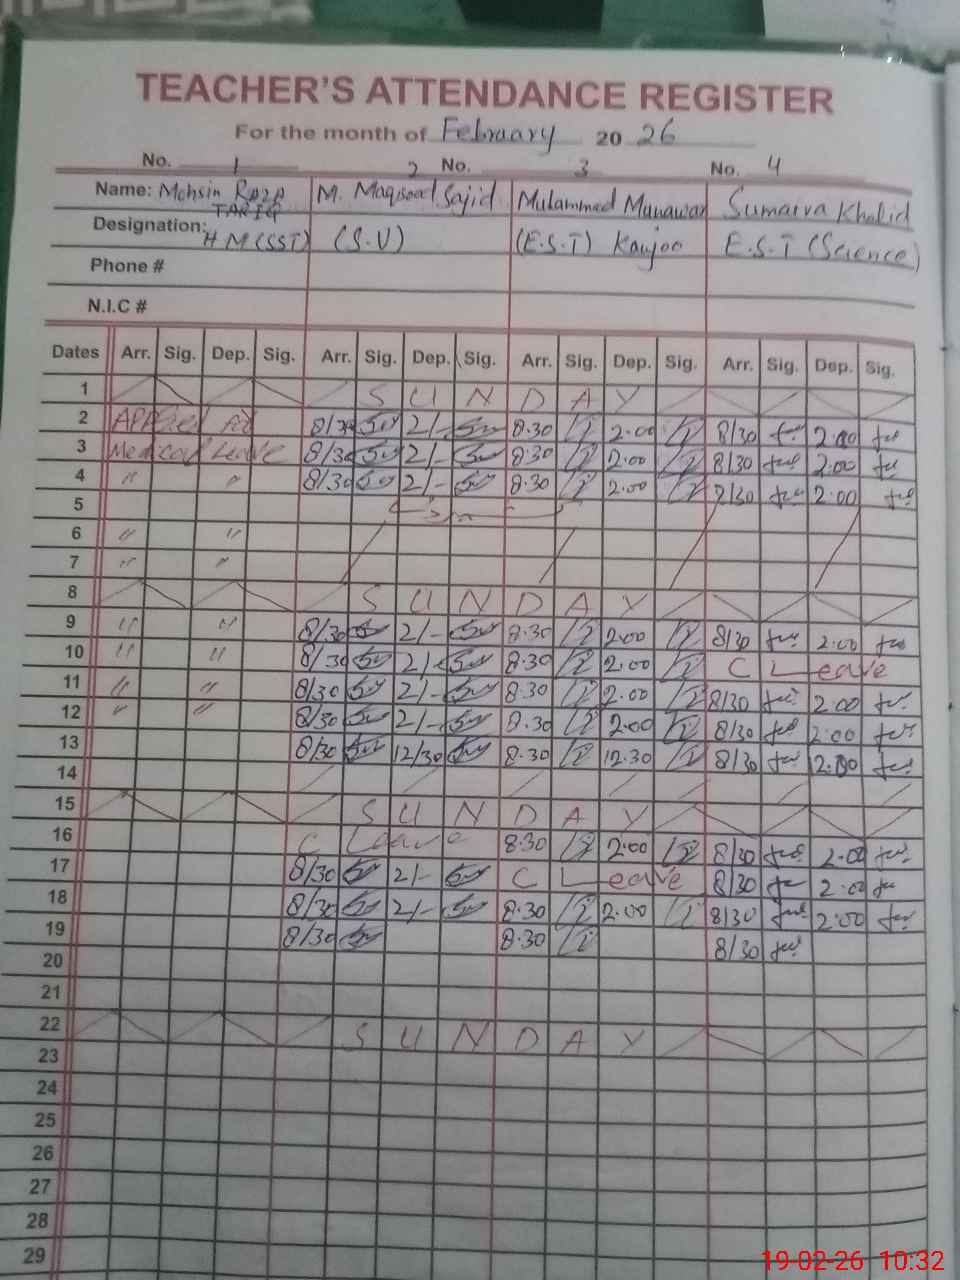 TEACHER'S ATTENDANCE REGISTER
For the month of February 20 26
No. 1 2 No. 3 No. 4
Name: Mohsin Raza TARIQ M. Maqsood Sajid Muhammed Munawar Sumaira Khalid
Designation: HM (SST) (S.V) (E.S.T) E.S.T (Science)
Phone #
N.I.C #
Dates Arr. Sig. Dep. Sig. Arr. Sig. Dep. Sig. Arr. Sig. Dep. Sig. Arr. Sig. Dep. Sig.
1 SUNDAY
2 Applied for 8/30 2/- 8.30 2.00 8/30 2.00
3 Medical Leave 8/30 2/- 8.30 2.00 8/30 2.00
4 " " 8/30 2/- 8.30 2.00 8/30 2.00
5
6 " "
7 " "
8 SUNDAY
9 " " 8/30 2/- 8.30 2.00 8/30 2.00
10 " " 8/30 2/- 8.30 2.00 C Leave
11 " " 8/30 2/- 8.30 2.00 8/30 2.00
12 " " 8/30 2/- 8.30 2.00 8/30 2:00
13 8/30 12/30 8.30 12.30 8/30
14
15 SUNDAY
16 C Leave 8.30 2.00 8/30 2.00
17 8/30 2/- C Leave 8/30 2.00
18 8/30 2/- 8.30 2.00 8/30 2:00
19 8/30 8.30 8/30
20
21
22 SUNDAY
23
24
25
26
27
28
29
19-02-26 10:32